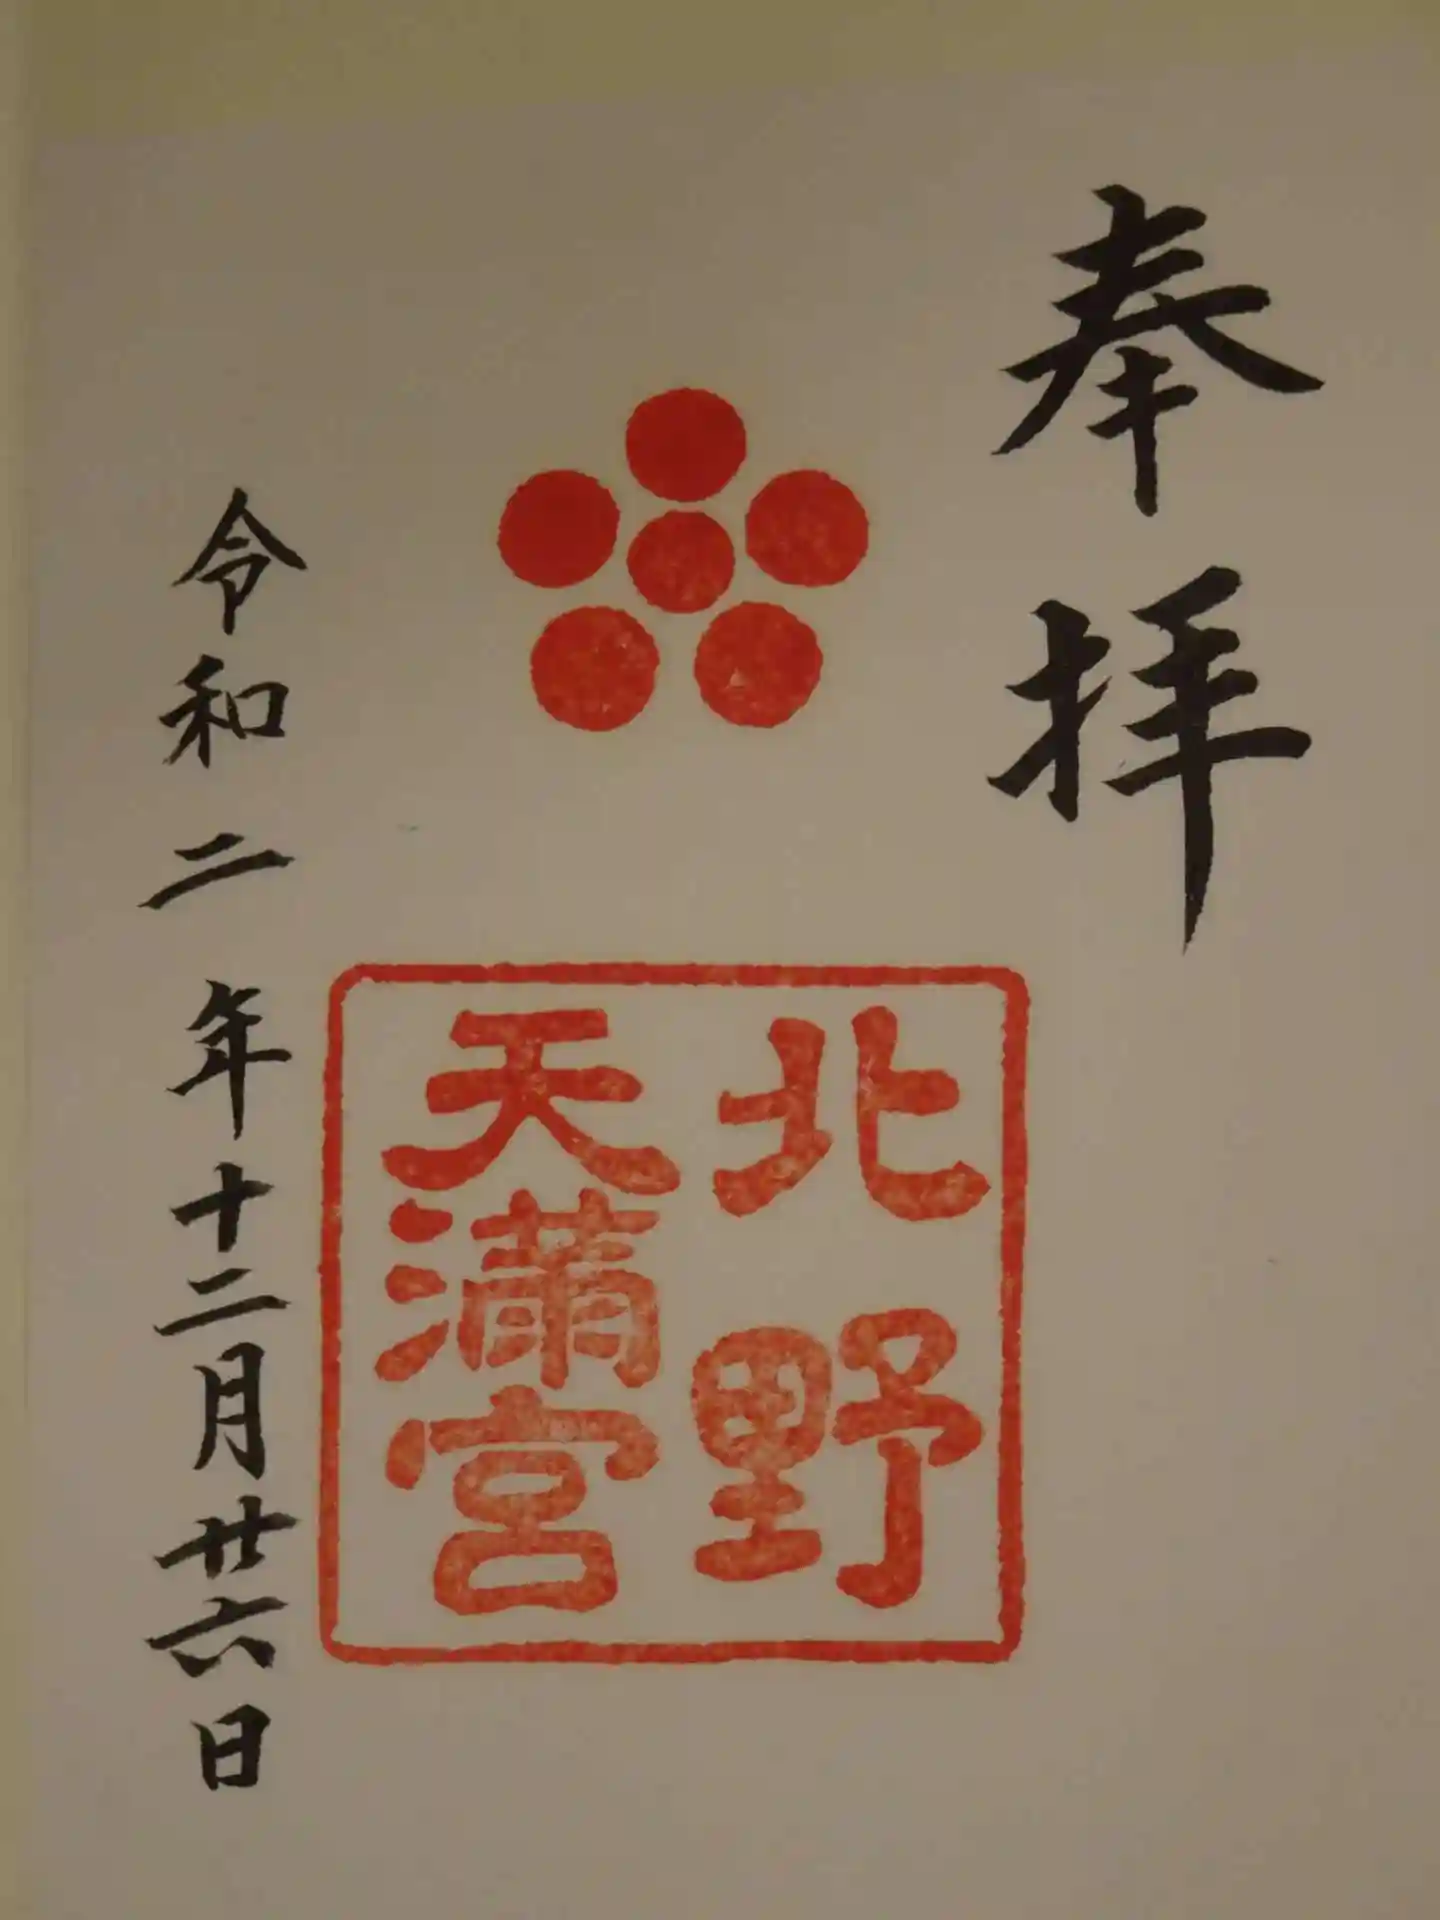 奉拝
北野
天満宮
令和二年十二月廿六日